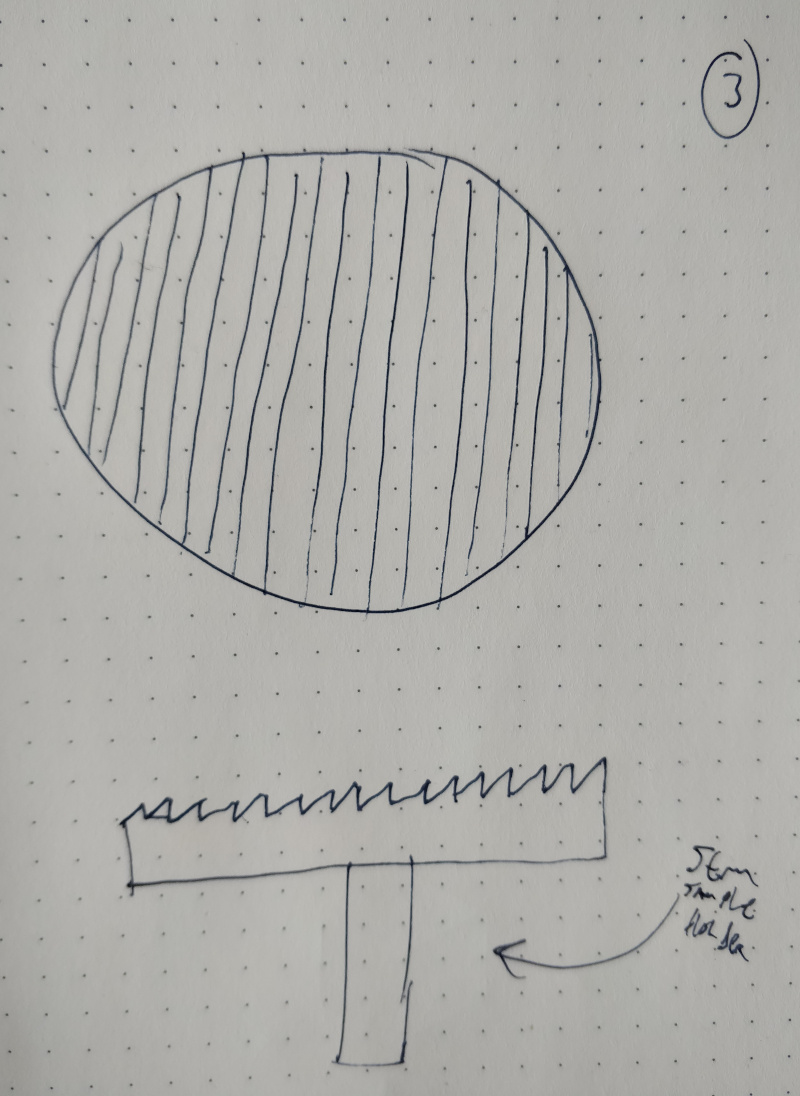 3
SEM
Sample
Holder